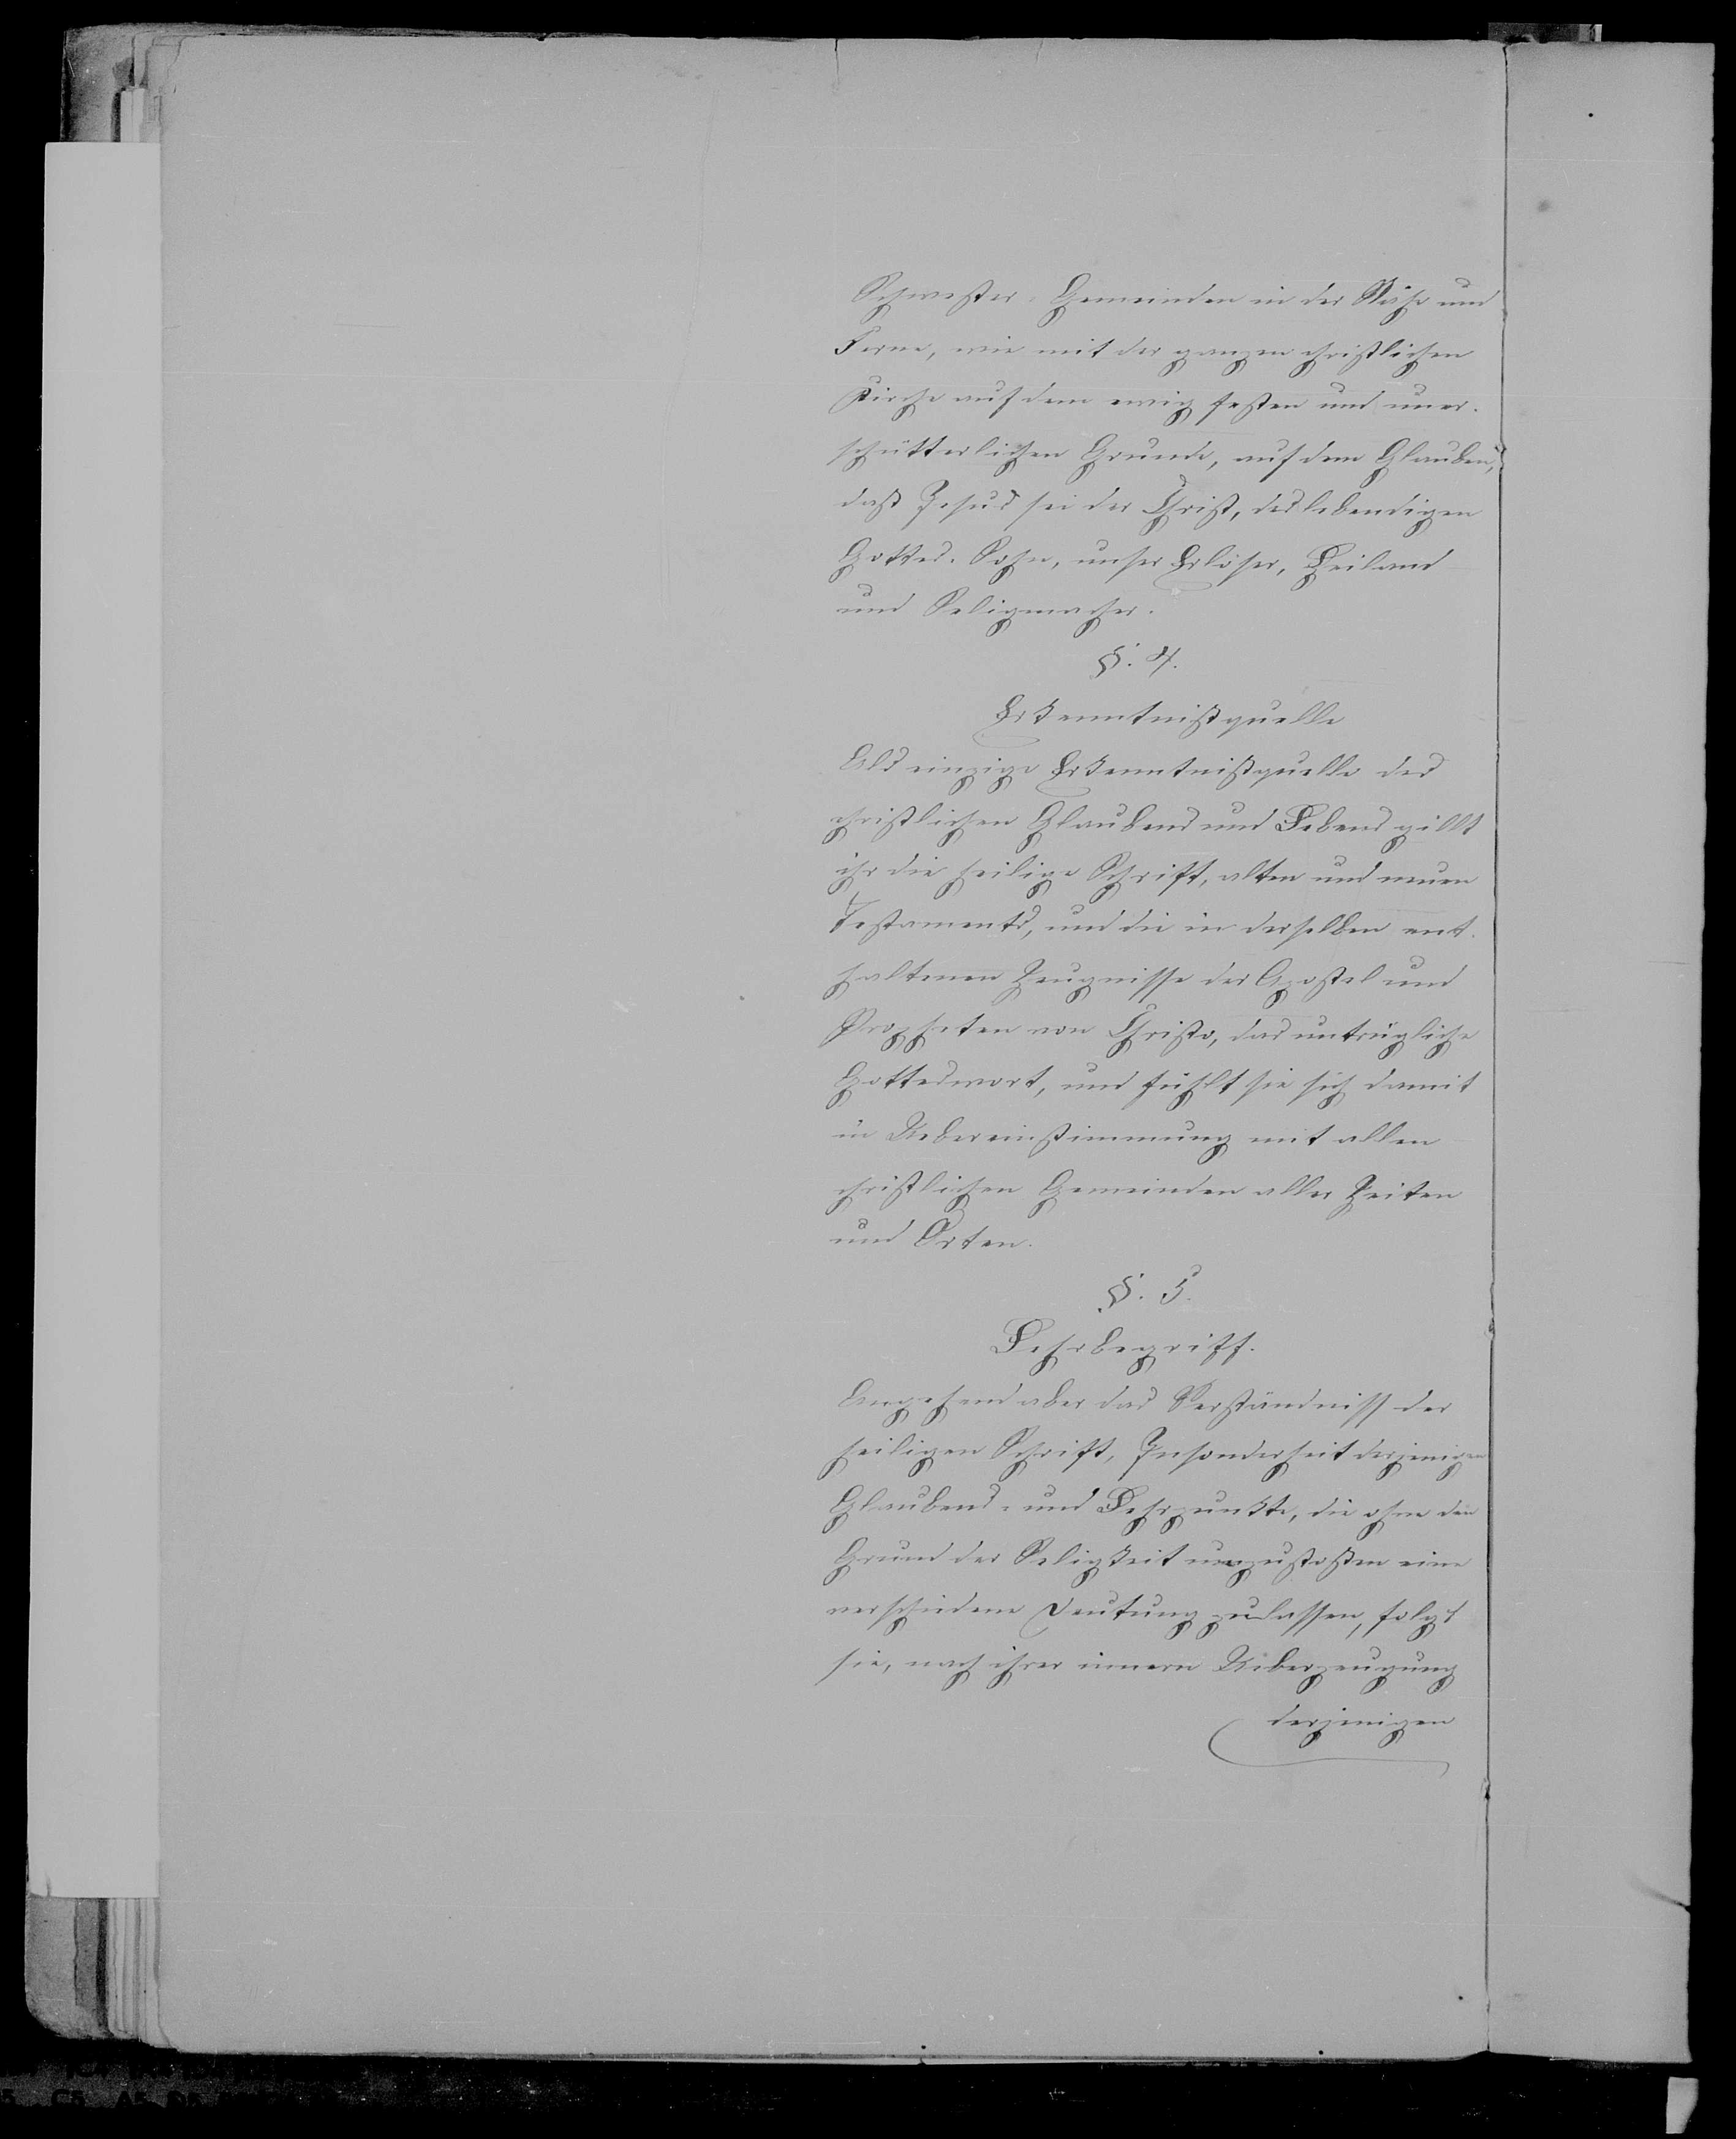 Schwester-Gemeinden in der Nähe und
Ferne, wie mit der ganzen christlichen
Kirche auf dem ewig festen und uner-
schütterlichen Grunde, auf dem Glauben,
daß Jesus sei der Christ, des lebendigen
Gottes-Sohn, unser Erlöser, Heiland
und Seligmacher.
§. 4.
Erkenntnißquelle
Als einzige Erkenntnißquelle des
christlichen Glaubens und Lebens gillt
ihr die heilige Schrift, alten und neuen
Testaments, und die in derselben ent-
haltenen Zeugnisse der Apostel und
Propheten von Christo, das untrügliche
Gotteswort, und fühlt sie sich damit
in Uebereinstimmung mit allen
christlichen Gemeinden aller Zeiten
und Orten.
§. 5.
Lehrbegriff.
Angehend aber das Verständniss der
heiligen Schrift, Insonderheit derjenigen
Glaubens- und Lehrpunkte, die ohne den
Grund der Seligkeit umzustoßen eine
verschiedene Deutung zulassen, folgt
sie, nach ihrer innern Ueberzeugung
derjenigen